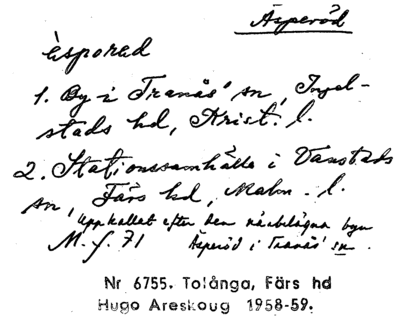 Äsperöd
èsporəd
1. By i Tranås' sn, Ingel-
stads hd, Krist. l.
2. Stationssamhälle i Vanstads
sn, Färs hd, Malm. l.
uppkallat efter den närbelägna byn
M. f. 71 Äsperöd i Tranås' sn.
Nr 6755. Tolånga, Färs hd
Hugo Areskoug 1958-59.